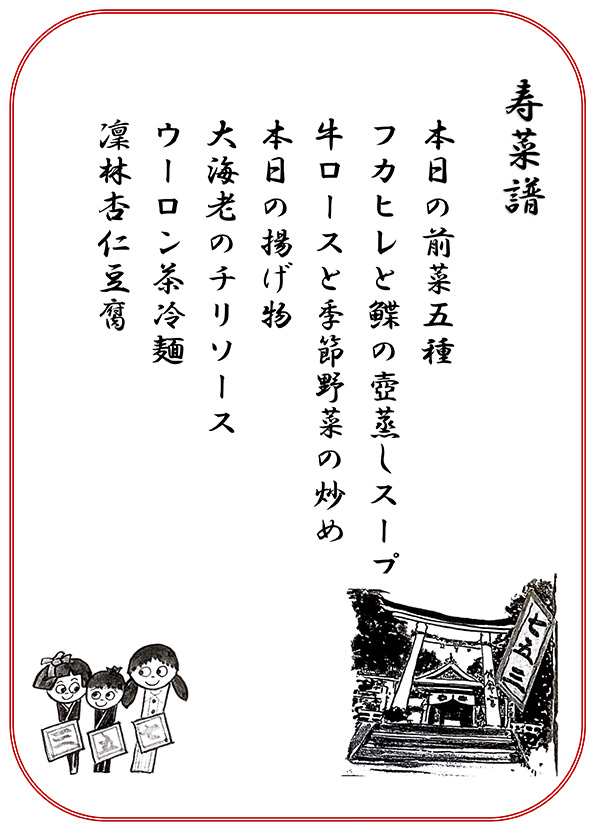 寿菜譜
本日の前菜五種
フカヒレと鰈の壺蒸しスープ
牛ロースと季節野菜の炒め
本日の揚げ物
大海老のチリソース
ウーロン茶冷麺
凜林杏仁豆腐
七五三
三
五
七